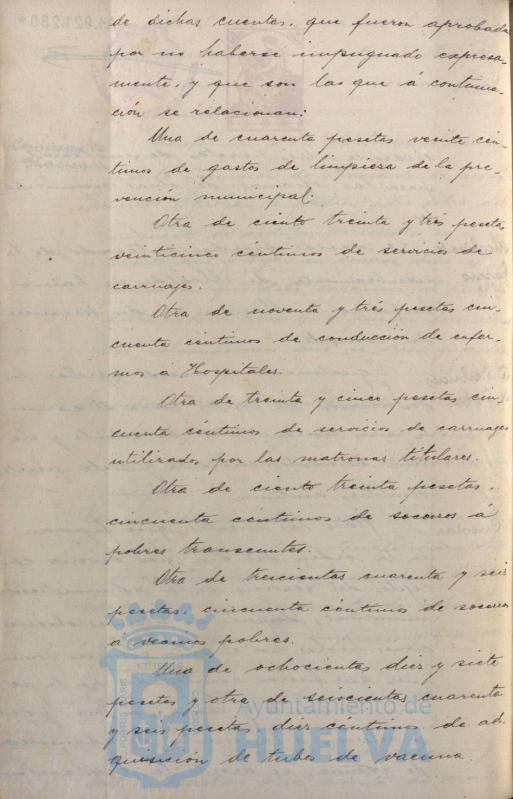 de dichas cuentas, que fueron aprobadas
por no haberse impugnado expresa-
mente, y que son las que á continua-
ción se relacionan:
Una de cuarenta pesetas veinte cén-
timos de gastos de limpiesa de la pre-
vención municipal.
Otra de ciento treinta y tres pesetas
veinticinco céntimos de servicios de
carruajes.
Otra de noventa y trés pesetas cin-
cuenta céntimos de conducción de enfer-
mos á Hospitales.
Otra de treinta y cinco pesetas cin-
cuenta céntimos de servicios de carruajes
utilizados por las matronas titulares.
Otra de ciento treinta pesetas
cincuenta céntimos de socorros á
pobres transeuntes.
Otra de trescientas cuarenta y seis
pesetas cincuenta céntimos de socorros
á vecinos pobres.
Una de ochocientas diez y siete
pesetas y otra de seiscientas cuarenta
y seis pesetas diez céntimos de ad-
quisición de tubos de vacuna.
Ayuntamiento de
HUELVA